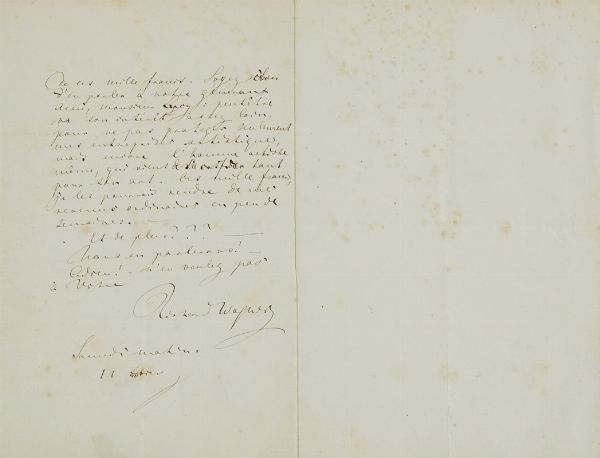 de ces mille francs. Soyez si bon
d'en parler à notre généreux
ami, monsieur : peut-être
va son intérêt assez loin,
pour ne pas protéger seulement
mes entreprises artistiques,
mais encore l'homme artiste
même, qui vient de sacrifier tant
pour son art. Ces mille francs,
je les pourrais rendre de mes
revenus ordinaires en peu de
semaines. —
Et de plus? ? ? —
Nous en parlerons! —
Adieu! — n'en voulez pas
à Votre
Richard Wagner
Samedi matin.
11